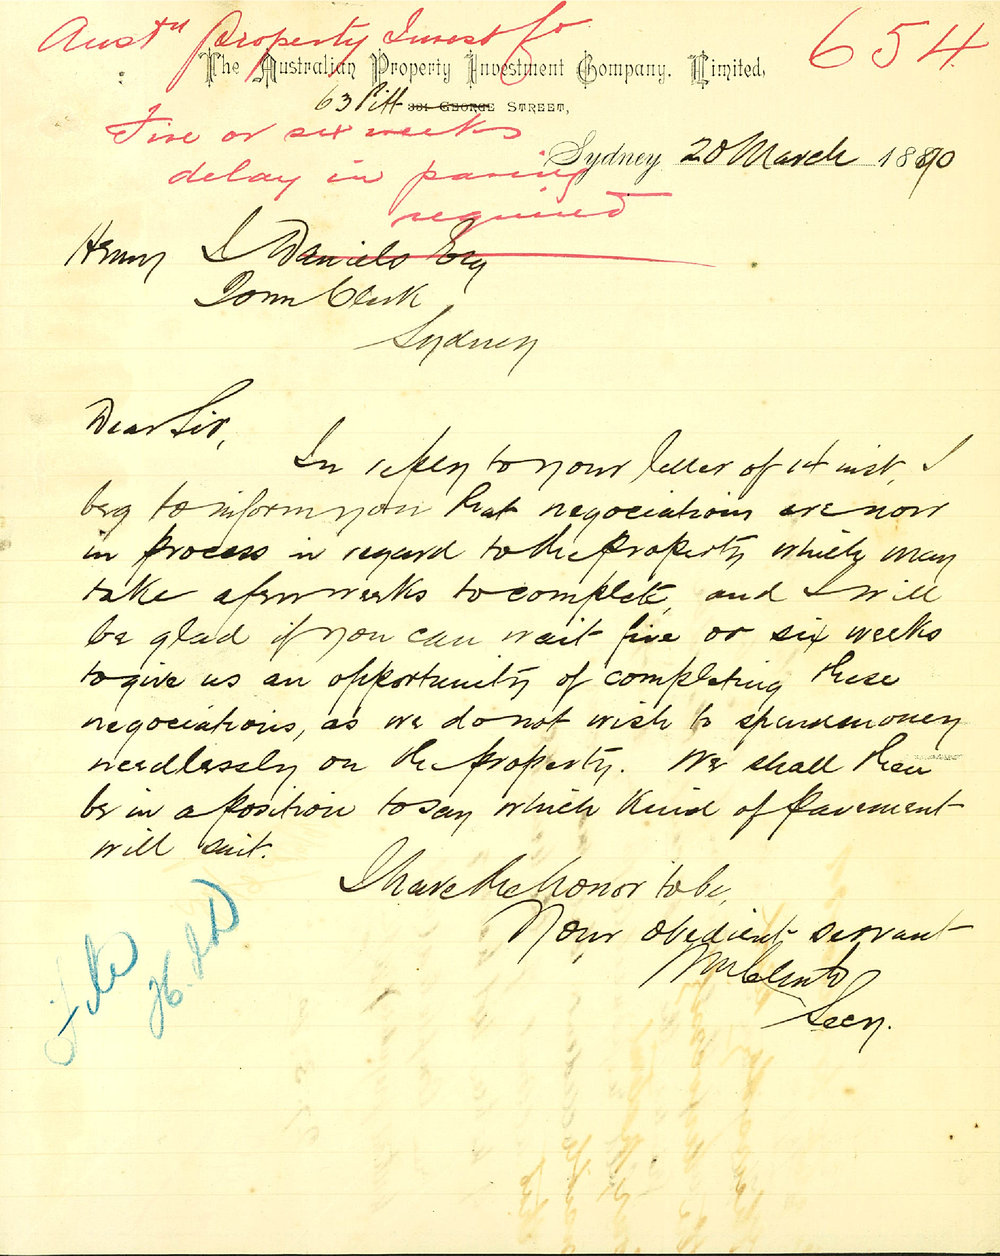 Austn Property Invest Co
654
The Australian Property Investment Company, Limited,
63 Pitt 331 George Street,
Five or six weeks
delay in paving
required
Sydney 20 March 1890
Henry J Daniels Esq
Town Clerk
Sydney
Dear Sir,
In reply to your letter of 14 inst, I
beg to inform you that negociations are now
in process in regard to the property which may
take a few weeks to complete, and I will
be glad if you can wait five or six weeks
to give us an opportunity of completing these
negociations, as we do not wish to spend money
needlessly on the property. We shall then
be in a position to say which kind of pavement
will suit.
I have the honor to be,
Your obedient servant
Secy.
H.J.D